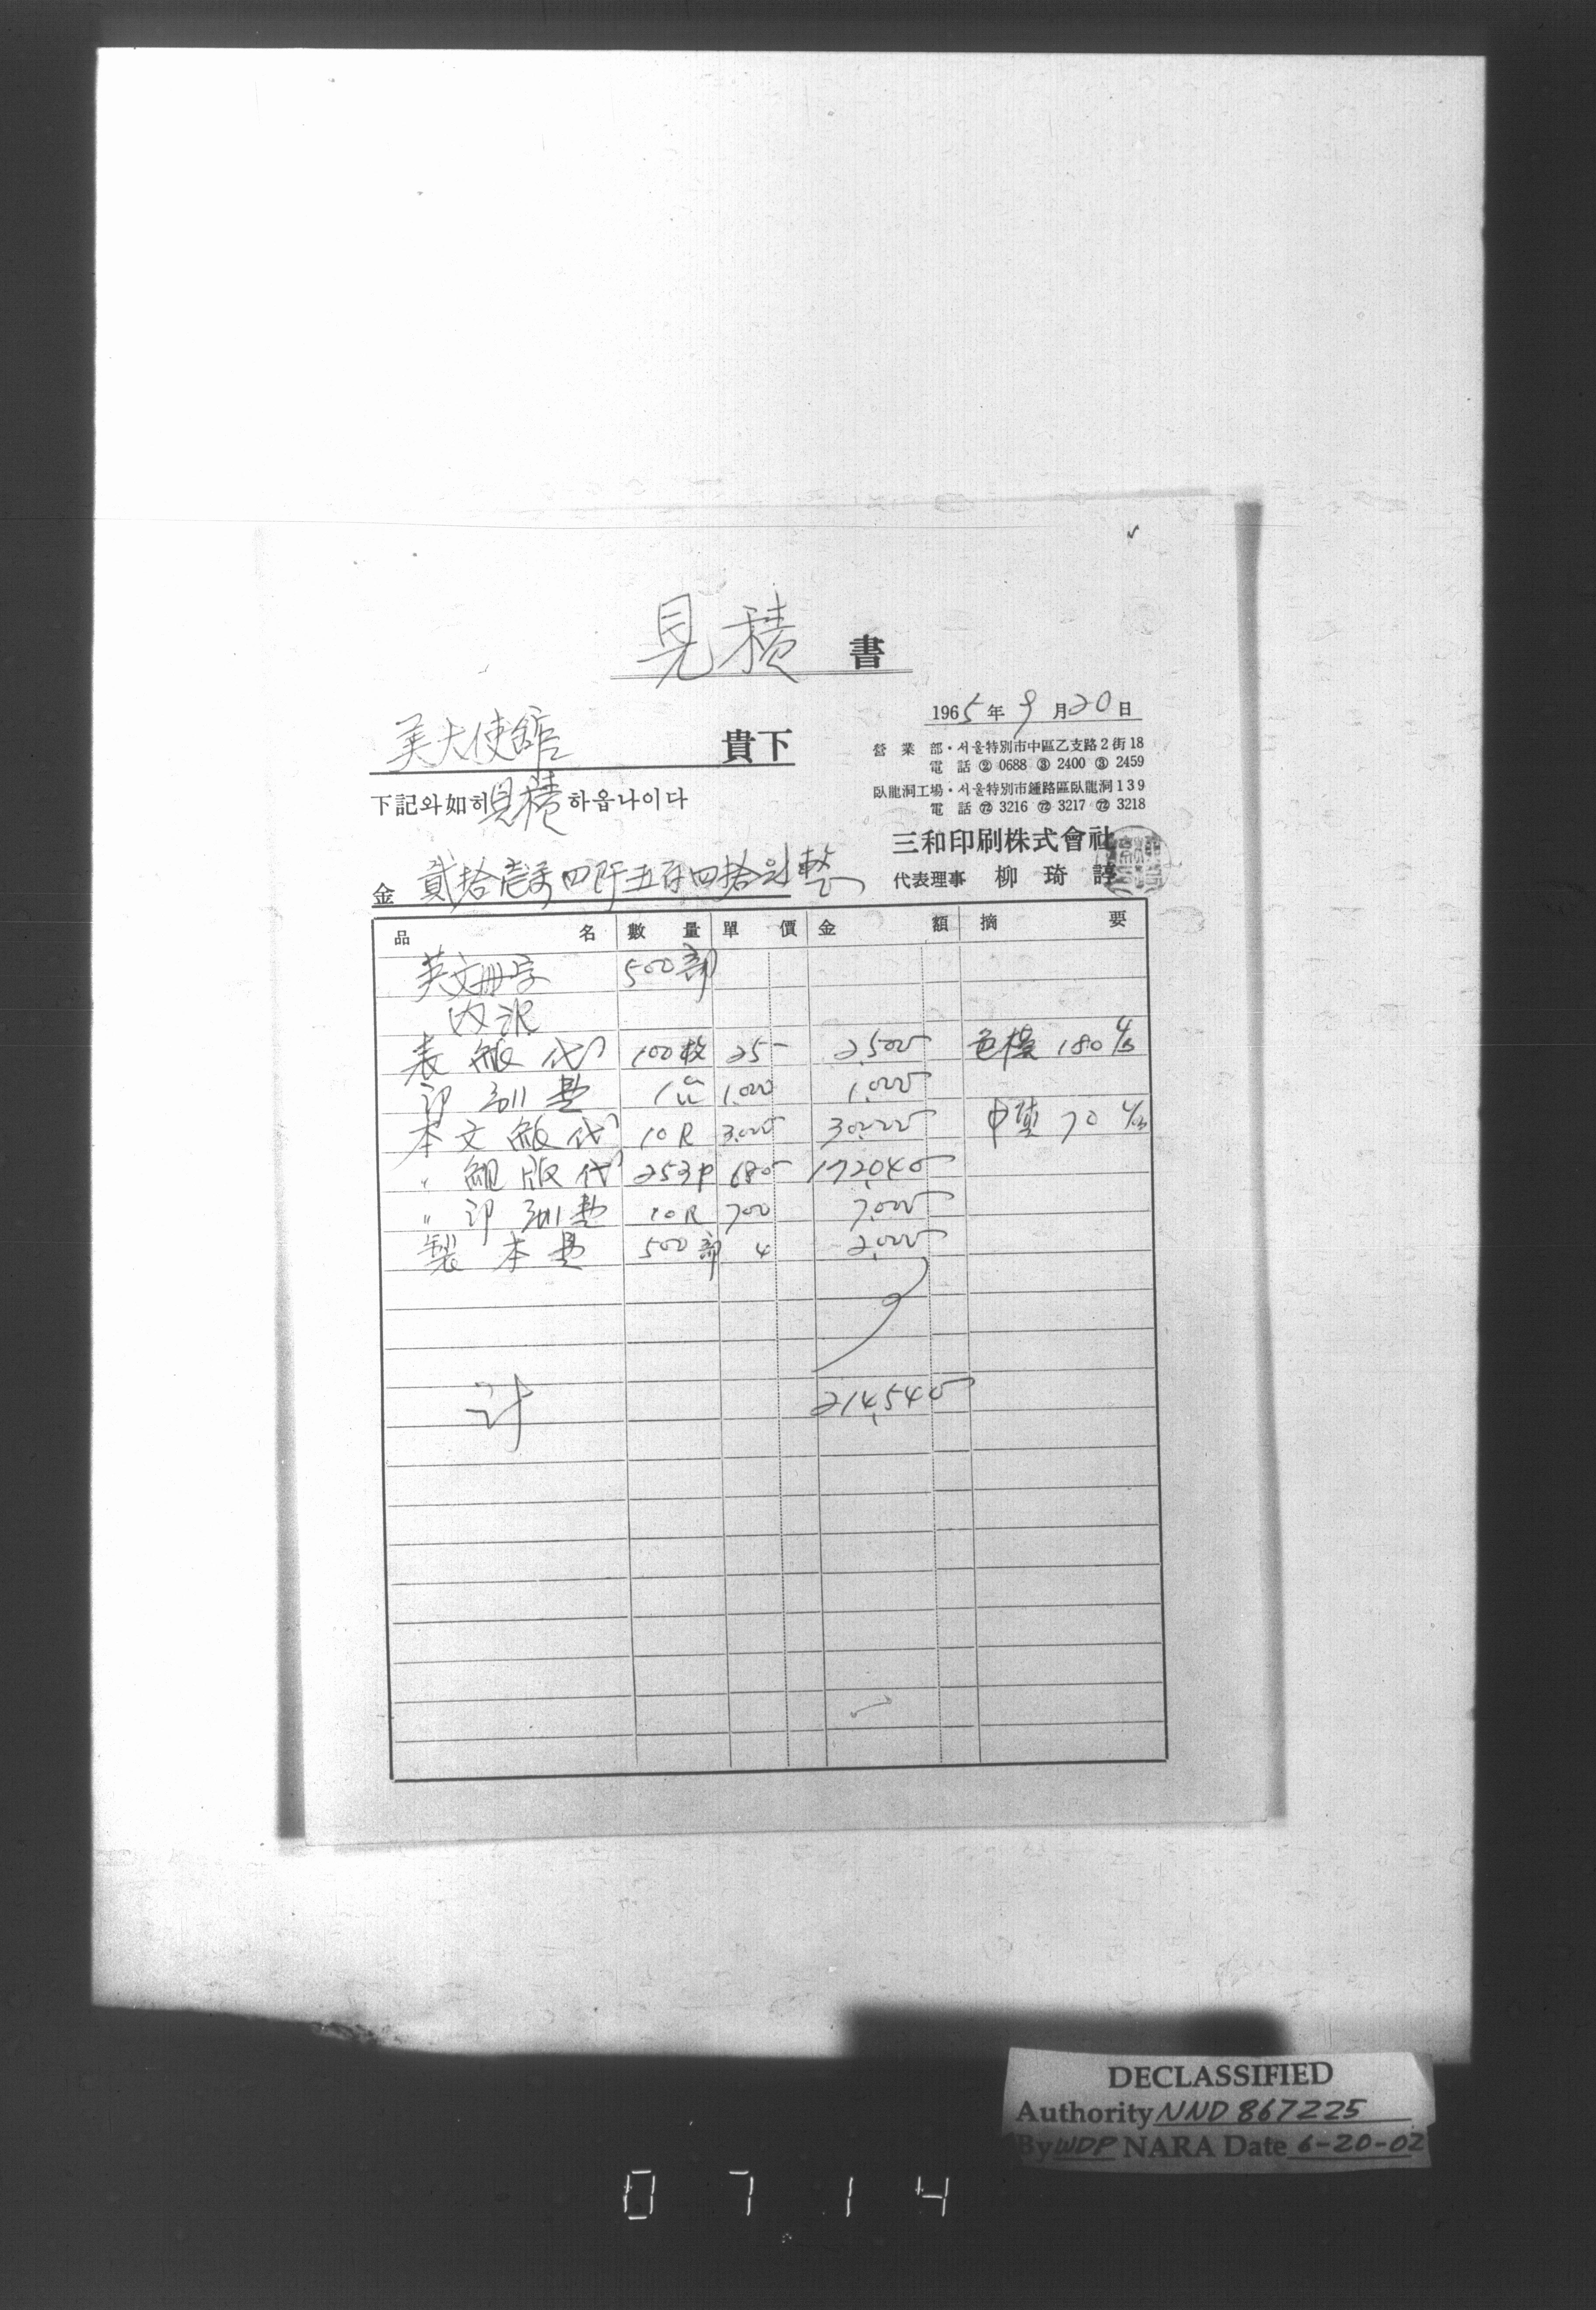 見積 書
1965年9月20日
美大使館 貴下
營業部・서울特別市中區乙支路2街18
電話 ② 0688 ③ 2400 ③ 2459
下記와如히見積하옵나이다
臥龍洞工場・서울特別市鍾路區臥龍洞139
電話 ㉒ 3216 ㉒ 3217 ㉒ 3218
三和印刷株式會社
代表理事 柳琦諄
金 貳拾壱萬四阡五百四拾원整
品名 數量 單價 金額 摘要
英文冊字 500部
内訳
表紙代 100枚 25- 2,500- 色模 180
印刷費 1 1,000 1,000-
本文紙代 10R 3,000- 30,000- 中質 70
〃 組版代 253P 680- 172,040-
〃 印刷費 10R 700 7,000-
製本費 500部 4 2,000-
計 214,540-
DECLASSIFIED
Authority NND 867225
By WDP NARA Date 6-20-02
0714